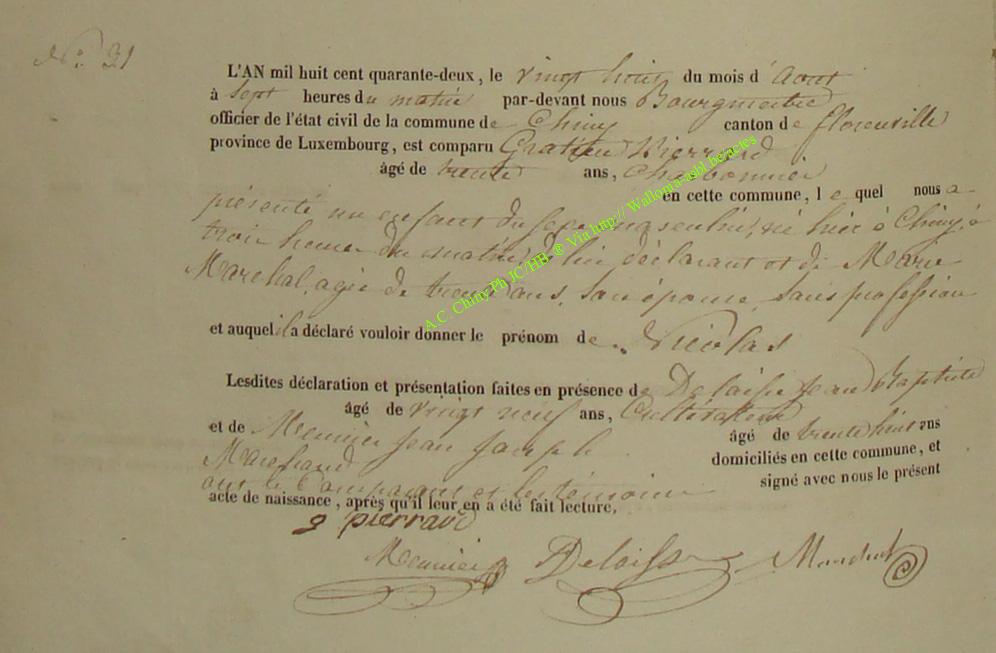 N.° 31
L'AN mil huit cent quarante-deux, le vingt huit du mois d'Aout
à sept heures du matin par-devant nous Bourgmestre
officier de l'état civil de la commune de Chiny canton de florenville
province de Luxembourg, est comparu Gratien Pierrard
âgé de trente ans, Charbonnier
en cette commune, le quel nous a
présenté un enfant du sexe masculin, né hier à Chiny, à
trois heures du matin, de lui déclarant et de Marie
Marechal, agée de trente ans, son épouse sans profession
et auquel il a déclaré vouloir donner le prénom de Nicolas
Lesdites déclaration et présentation faites en présence de Delaisse Jean Baptiste
âgé de vingt neuf ans, Cultivateur
et de Meunier Jean Joseph âgé de trente huit ans
Marchand domiciliés en cette commune, et
ont le Comparant et les témoins signé avec nous le présent
acte de naissance, après qu'il leur en a été fait lecture.
g pierrard
Meunier Delaisse
A.C. Chiny Ph JC/HB @ Via http:// Wallonia-asbl.be/actes